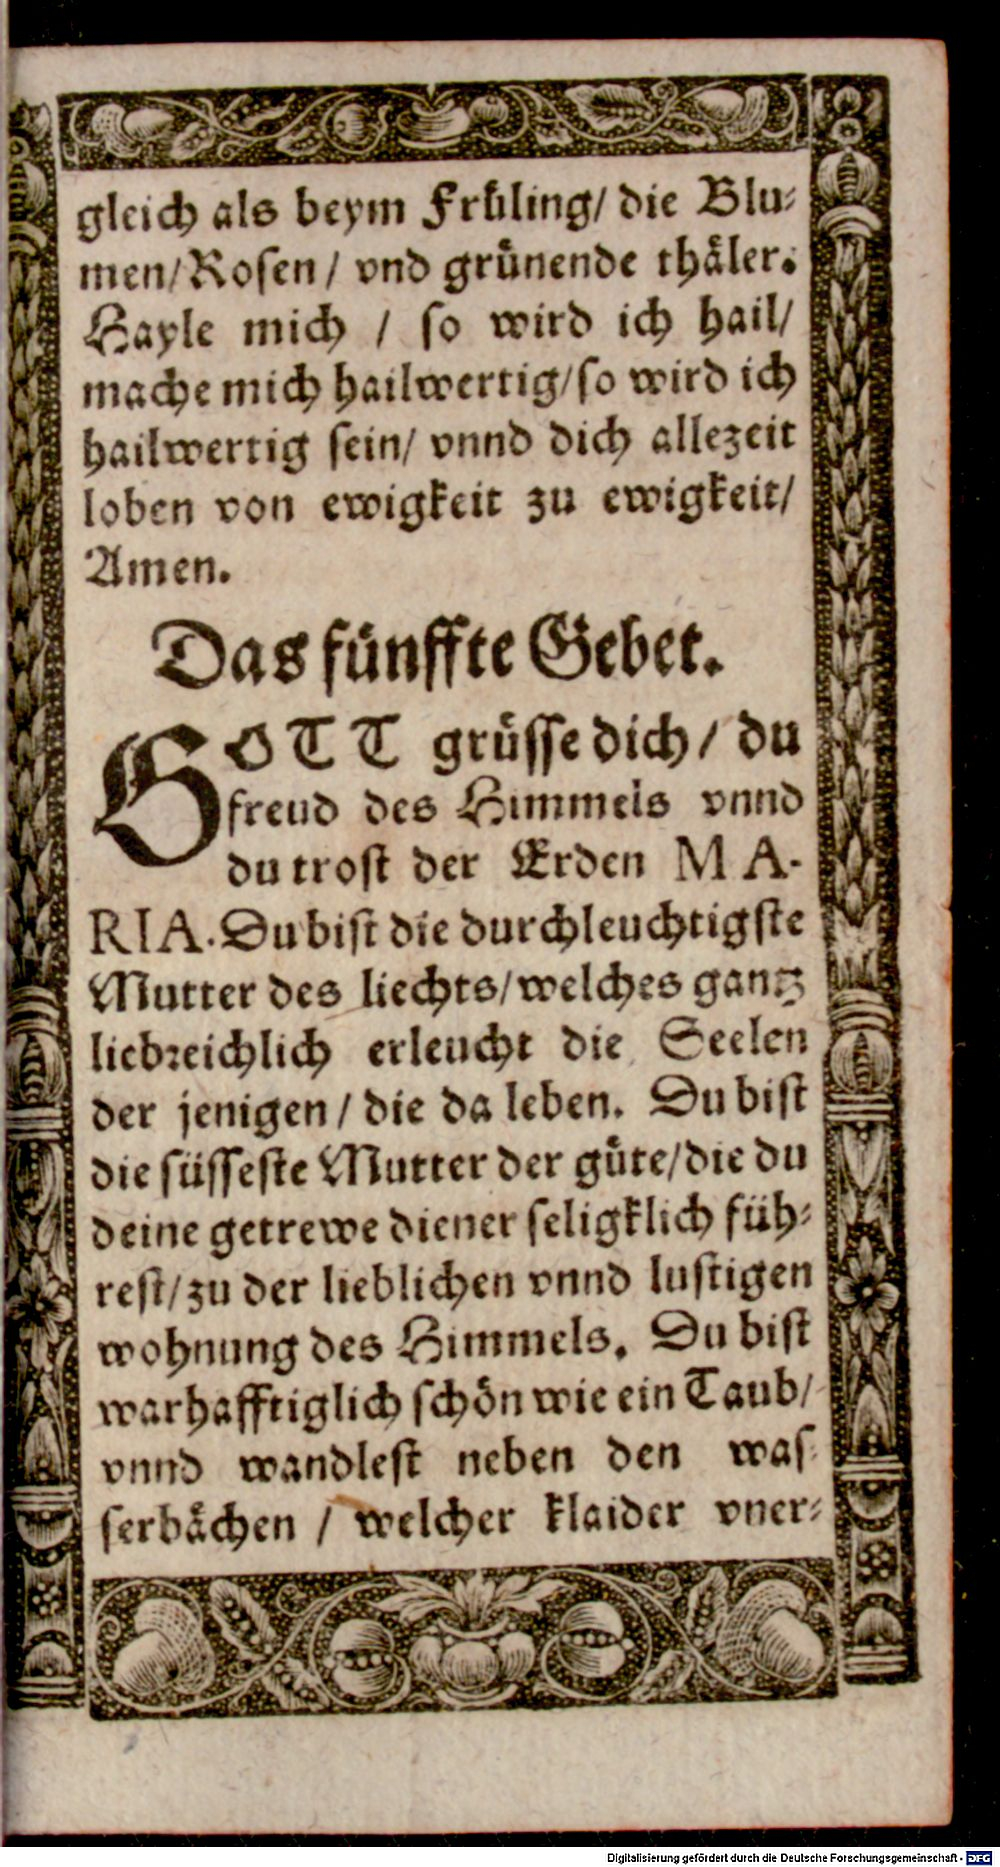 gleich als beym Früling/ die Blu-
men/ Rosen / vnd grünende thäler.
Hayle mich / so wird ich hail/
mache mich hailwertig/ so wird ich
hailwertig sein/ vnnd dich allezeit
loben von ewigkeit zu ewigkeit/
Amen.
Das fünffte Gebet.
GOTT grüsse dich/ du
freud des Himmels vnnd
du trost der Erden MA-
RIA. Du bist die durchleuchtigste
Mutter des liechts/ welches gantz
liebreichlich erleucht die Seelen
der jenigen / die da leben. Du bist
die süsseste Mutter der güte/ die du
deine getrewe diener seligklich füh-
rest/ zu der lieblichen vnnd lustigen
wohnung des Himmels. Du bist
warhafftiglich schön wie ein Taub/
vnnd wandlest neben den was-
serbächen / welcher klaider vner-
Digitalisierung gefördert durch die Deutsche Forschungsgemeinschaft - DFG